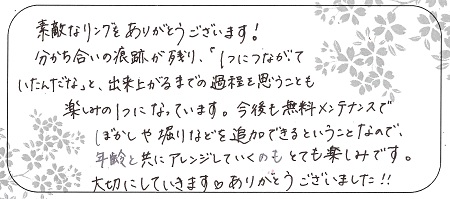 素敵なリングをありがとうございます！
分かち合いの痕跡が残り、「1つにつながって
いたんだな」と、出来上がるまでの過程を思うことも
楽しみの1つになっています。今後も無料メンテナンスで
ぼかしや堀りなどを追加できるということなので、
年齢と共にアレンジしていくのもとても楽しみです。
大切にしていきます♡ありがとうございました!!